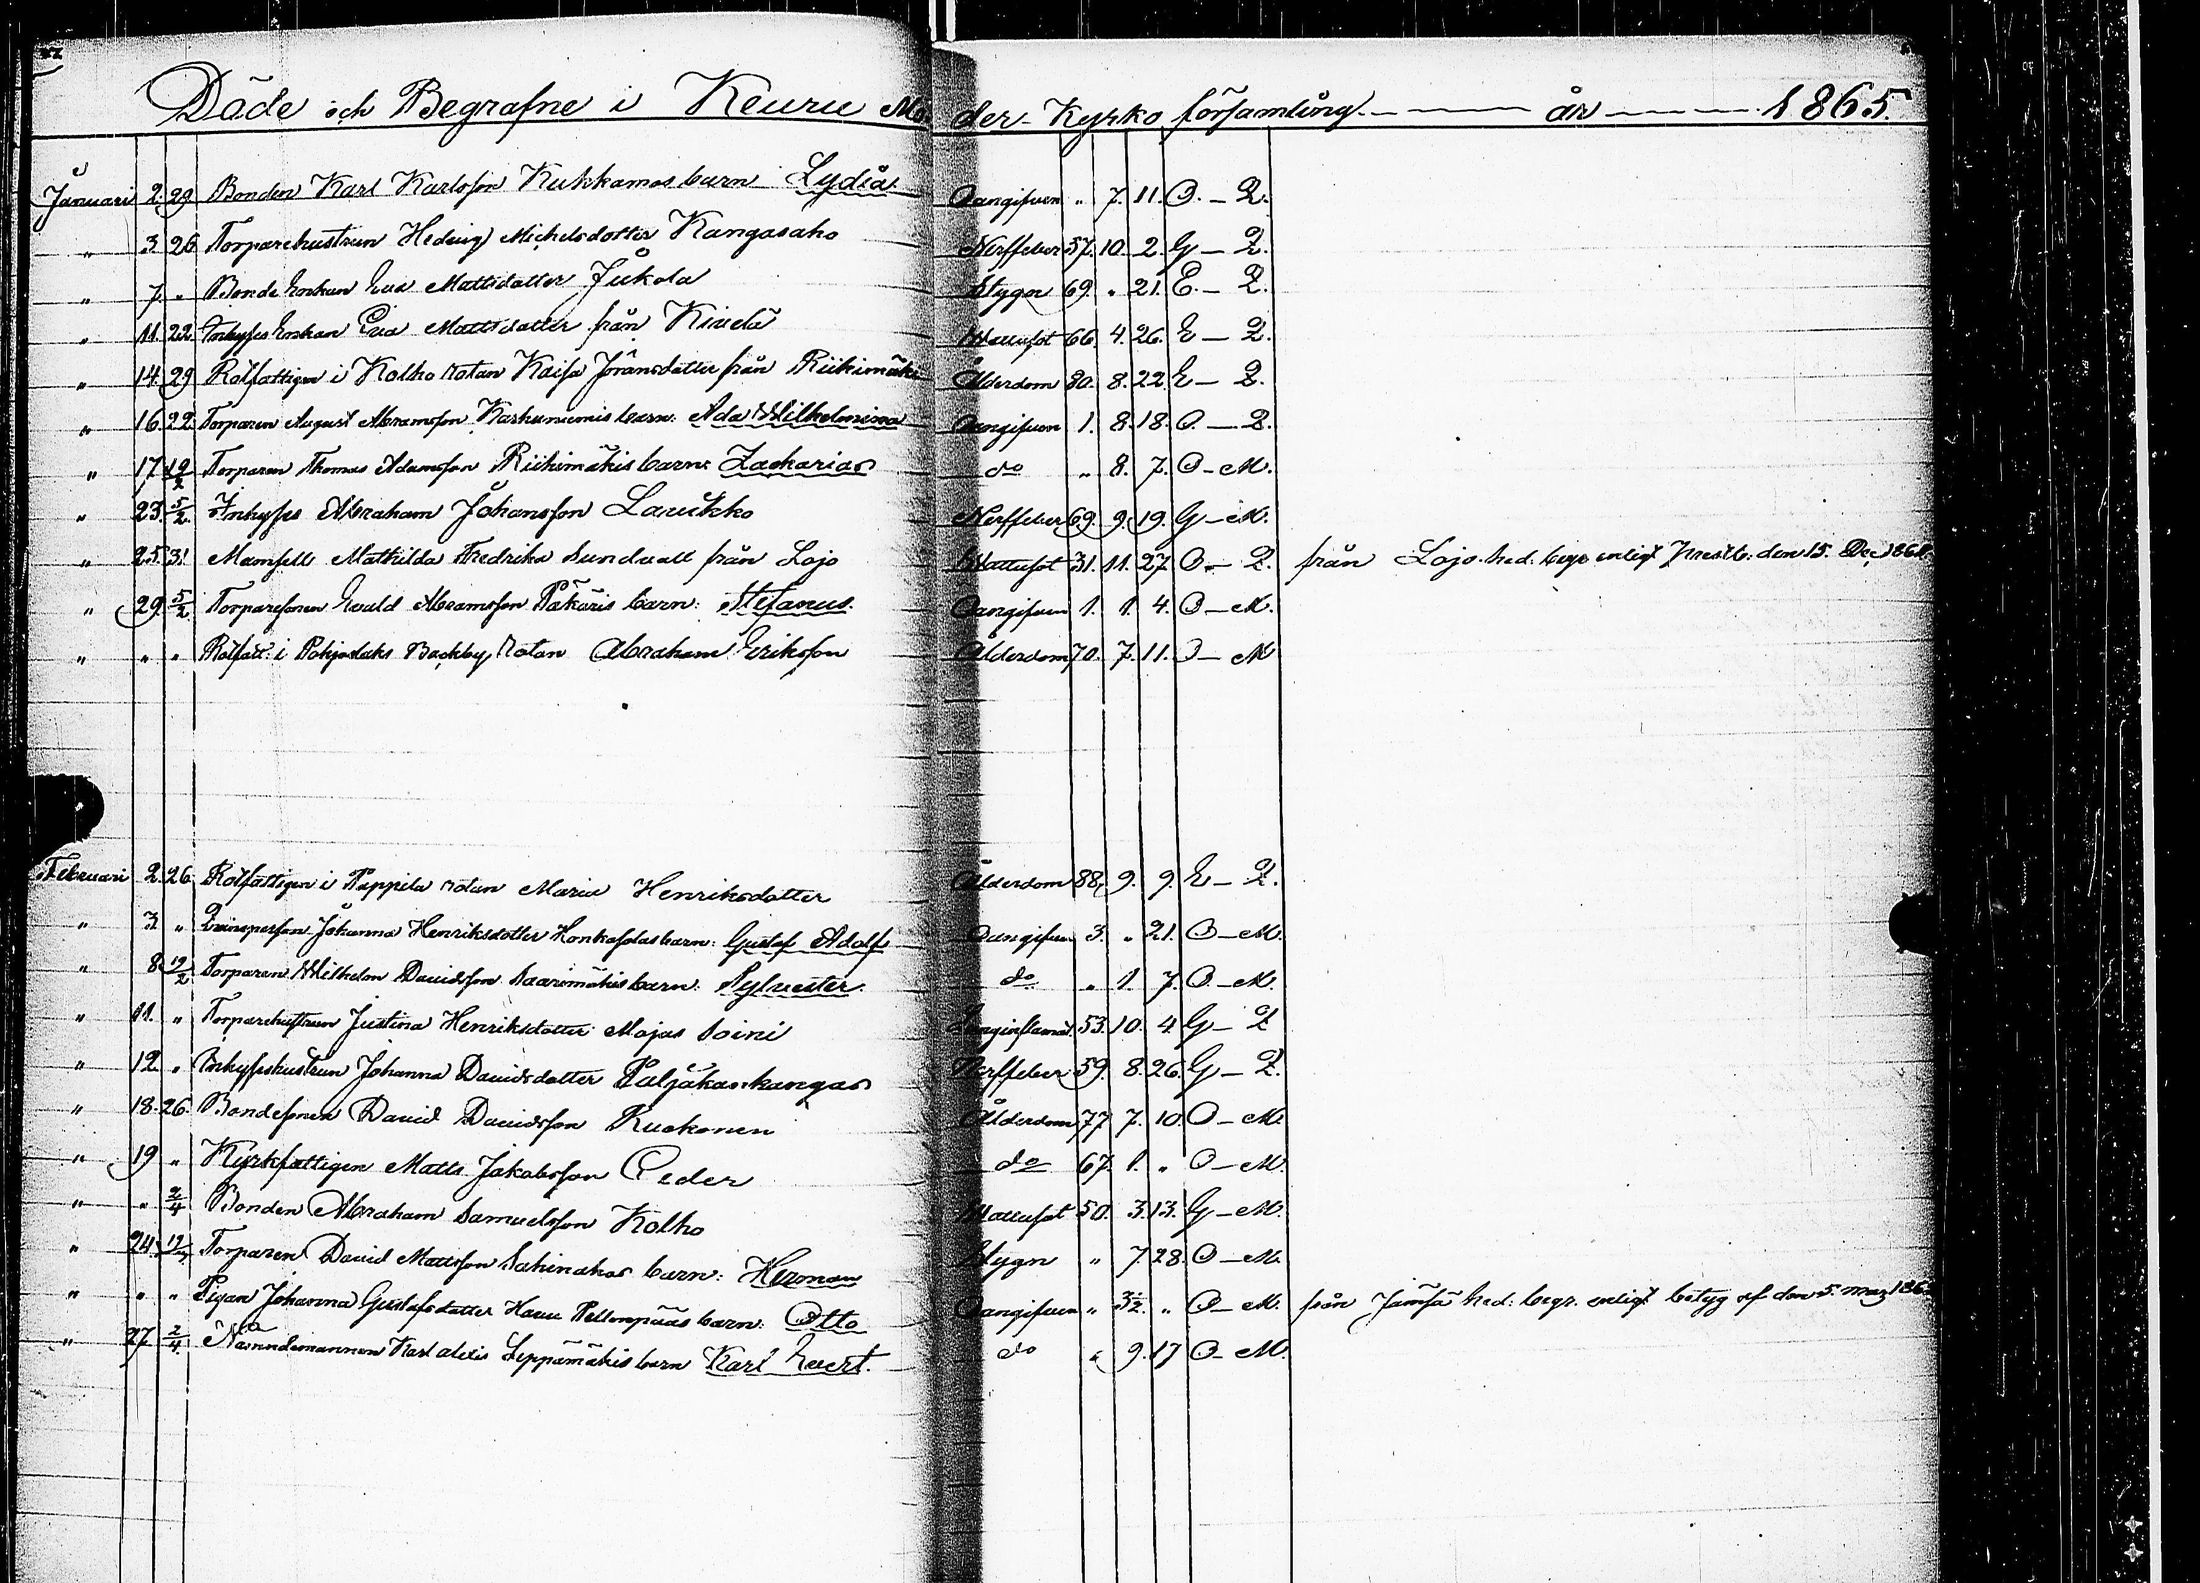 Döde och Begrafne i Keuru Mo der-Kyrko församling. år 1865.
Januari 2. 29 Bonden Karl Karlsson Kukkamos barn Lydia. Oangifven " 7. 11. O. - Q.
" 3. 26 Torparehustrun Hedvig Michelsdotter Kangasaho Nerffeber 57. 10. 2. G - Q.
" 7. " Bonde Enkan Eva Mattsdotter Jukola Stygn 69. " 21. E. - Q.
" 11. 22 Inhyses Enkan Eva Mattsdotter från Kivelä Wattusot 66. 4. 26. E - Q.
" 14. 29 Rotfattigen i Kolho rotan Kaisa Jöransdotter från Riihimäki Ålderdom 80. 8. 22. E - Q.
" 16. 22. Torparen August Abramsson Karhuniemis barn: Ada Wilhelmina Oangifven 1. 8. 18. O. - Q.
" 17. 12/2 Torparen Thomas Adamsson Riihimäkis barn: Zacharias do " 8. 7. O - M.
" 23. 5/2. Inhyses Abraham Johansson Laukko Nerffeber 69. 9. 19. G - M.
" 25. 31. Mamsell Mathilda Fredrika Sundvall från Lojo Wattusot 31. 11. 27. O. - Q. från Lojo hed. begr. enligt Prestb: den 15. Dec. 186
" 29. 5/2 Torparesonen Evald Abramsson Pakaris barn: Stefanus. Oangifven 1. 1. 4. O - M.
" " " Rotfatt: i Pohjoslaks Backby rotan Abraham Eriksson Ålderdom 70. 7. 11. O - M
Februari 2. 26 Rotfattigen i Pappila rotan Maria Henriksdotter Ålderdom 88. 9. 9. E - Q.
" 3. " Johanna Henriksdotter Honkasalos barn: Gustaf Adolf Oangifven 3. " 21. O - M.
" 8. 12/2 Torparen Wilhelm Davidsson Saarimäkis barn: Sylvester. do " 1. 7. O - M.
" 11. " Torparehustrun Justina Henriksdotter Soini 53. 10. 4. G - Q
" 12. " Inhyseshustrun Johanna Davidsdotter Paljakankangas Nerffeber 59. 8. 26. G - Q.
" 18. 26. Bondesonen David Davidsson Ruokonen Ålderdom 77 7. 10. O - M.
" 19 " Kyrkfattigen Matts Jakobsson Ceder do 67. 1. " O - M.
" " 2/4 Bonden Abraham Samuelsson Kolho Wattusot 50. 3. 13. G - M.
" 24. Torparen David Mattsson barn: Herman Stygn " 7. 28. O - M.
" " " Pigan Johanna Gustafsdotter barn: Otto Oangifven " 3½. " O - M. från Jämsä hed: begr. enligt betyg af den 5. maj 186
" 27 2/4. Nämndemannen Karl alexis Leppämäkis barn Karl Evert. do " 9. 17 O - M.